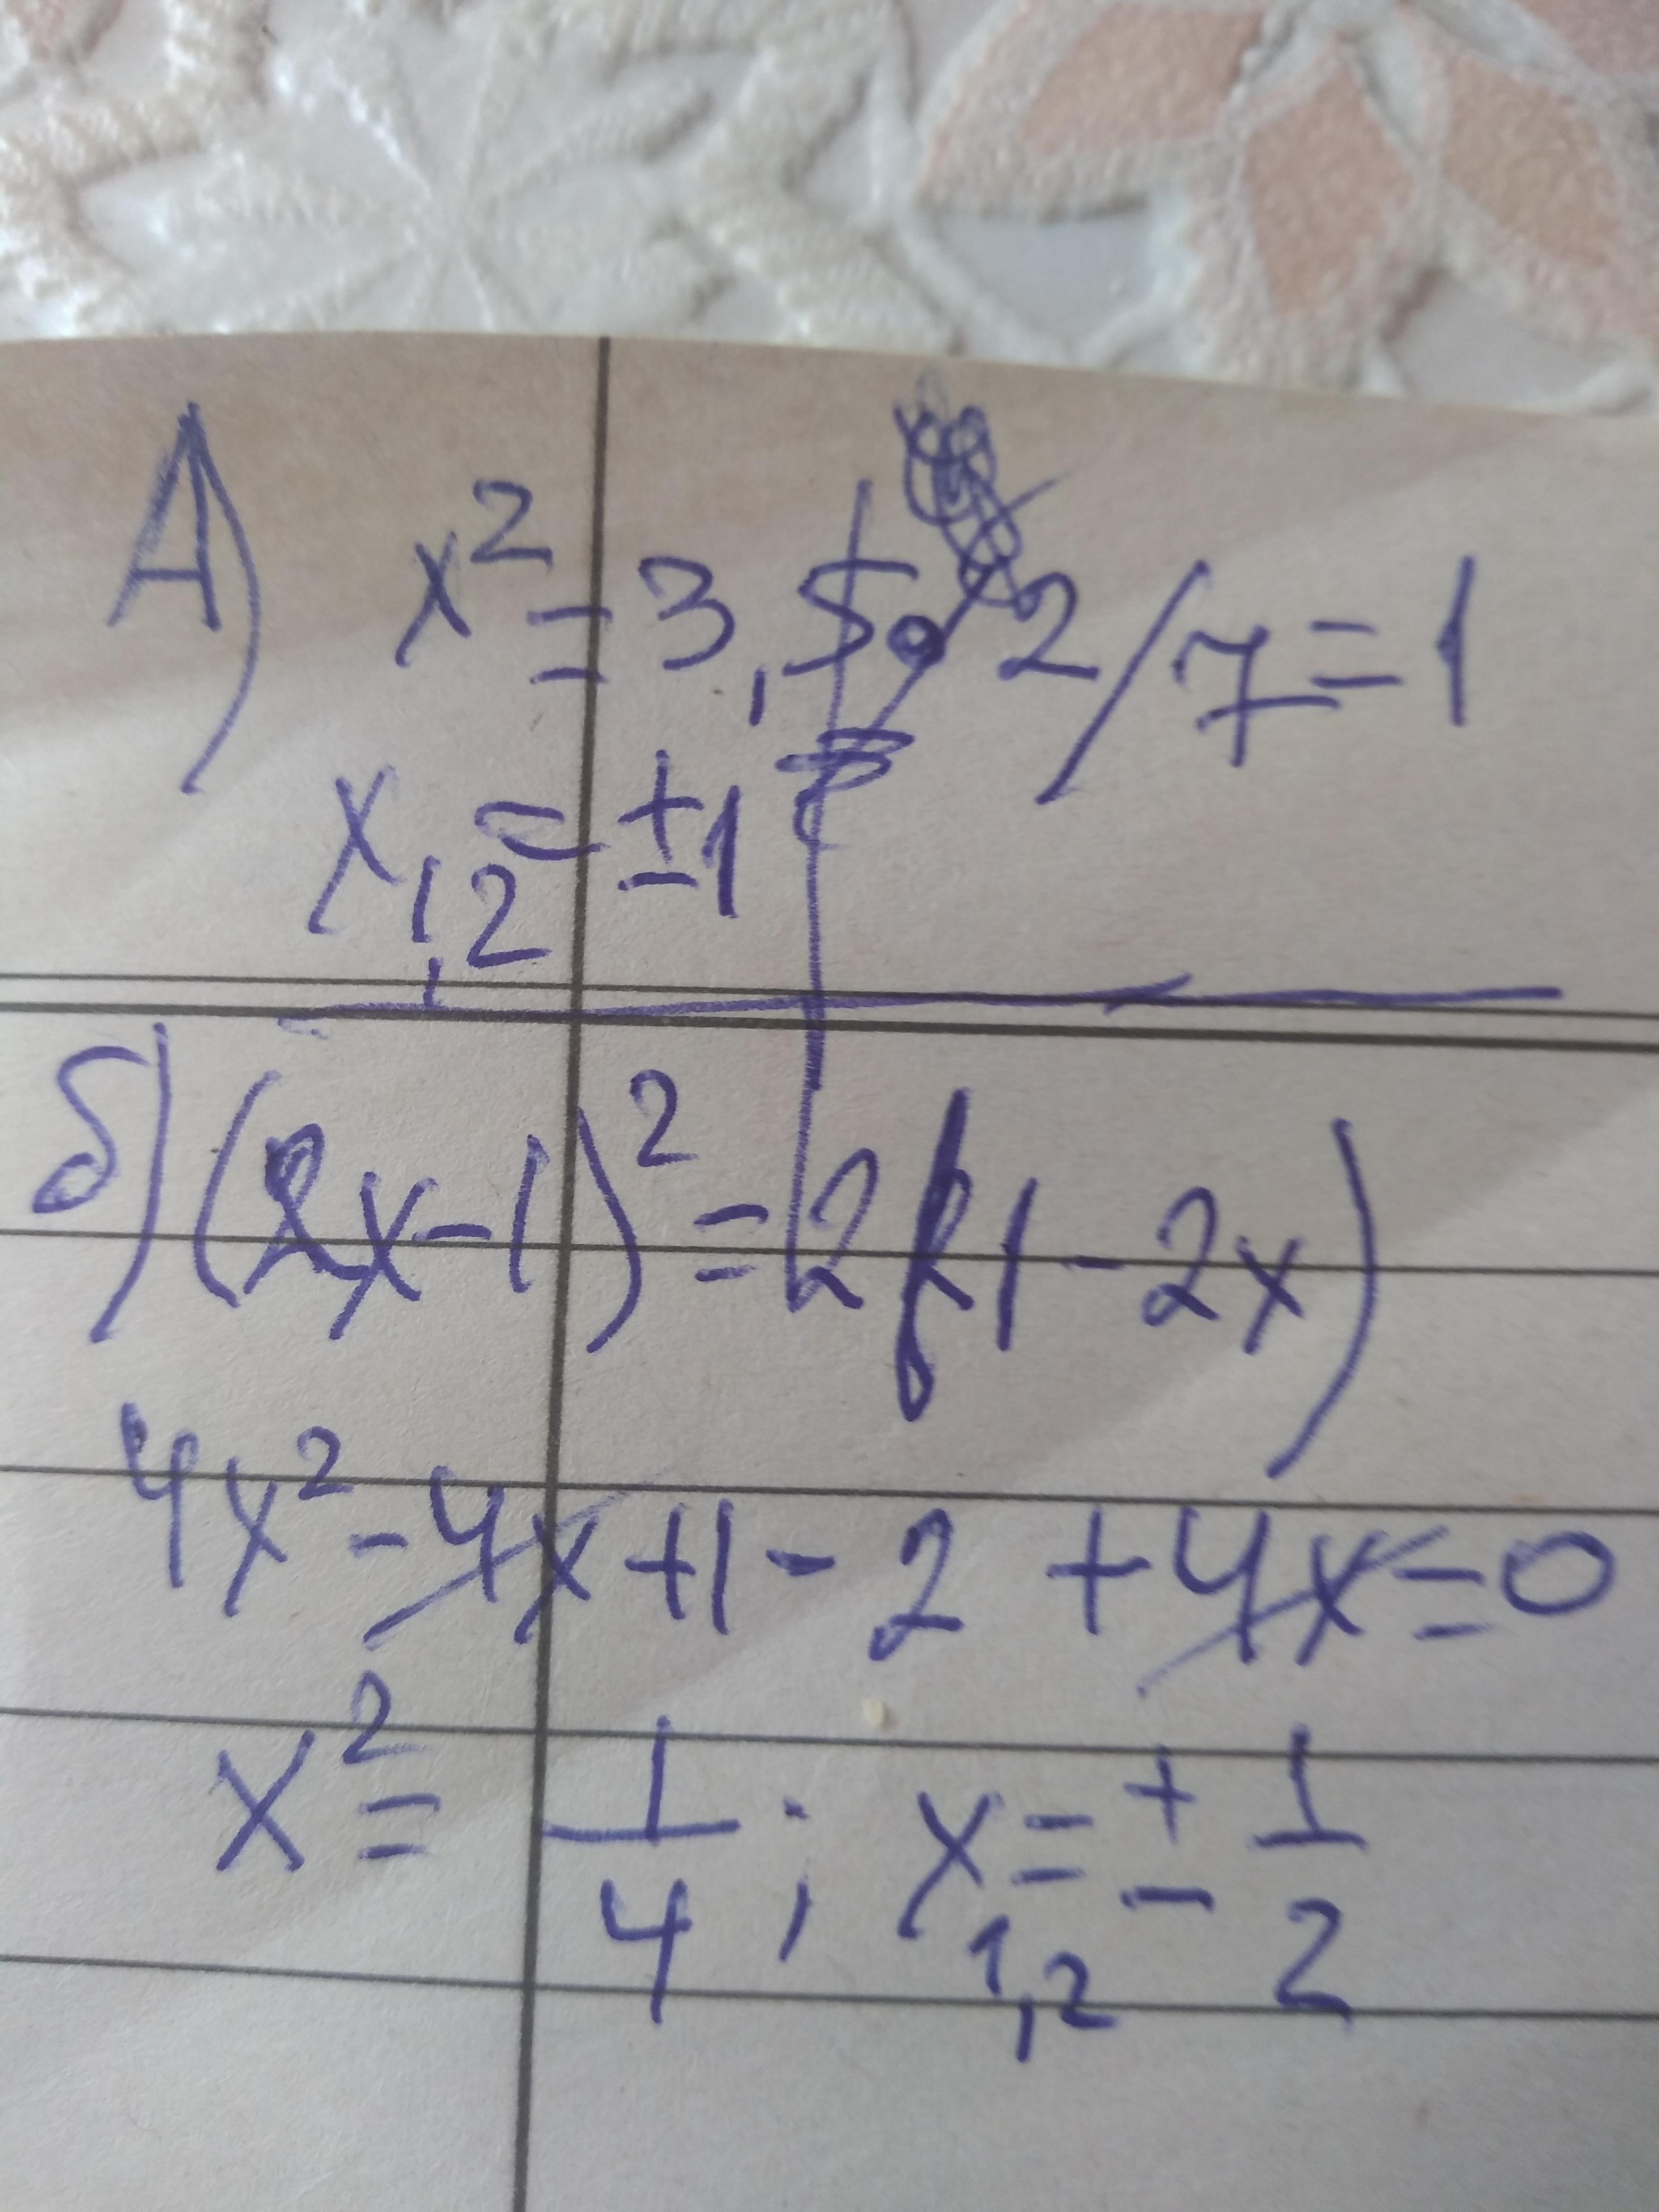 А) x² = 3,5 • 2/7 = 1
x₁,₂ = ±1
б) (2x-1)² = 2(1-2x)
4x² - 4x + 1 - 2 + 4x = 0
x² = 1/4 ; x₁,₂ = ± 1/2